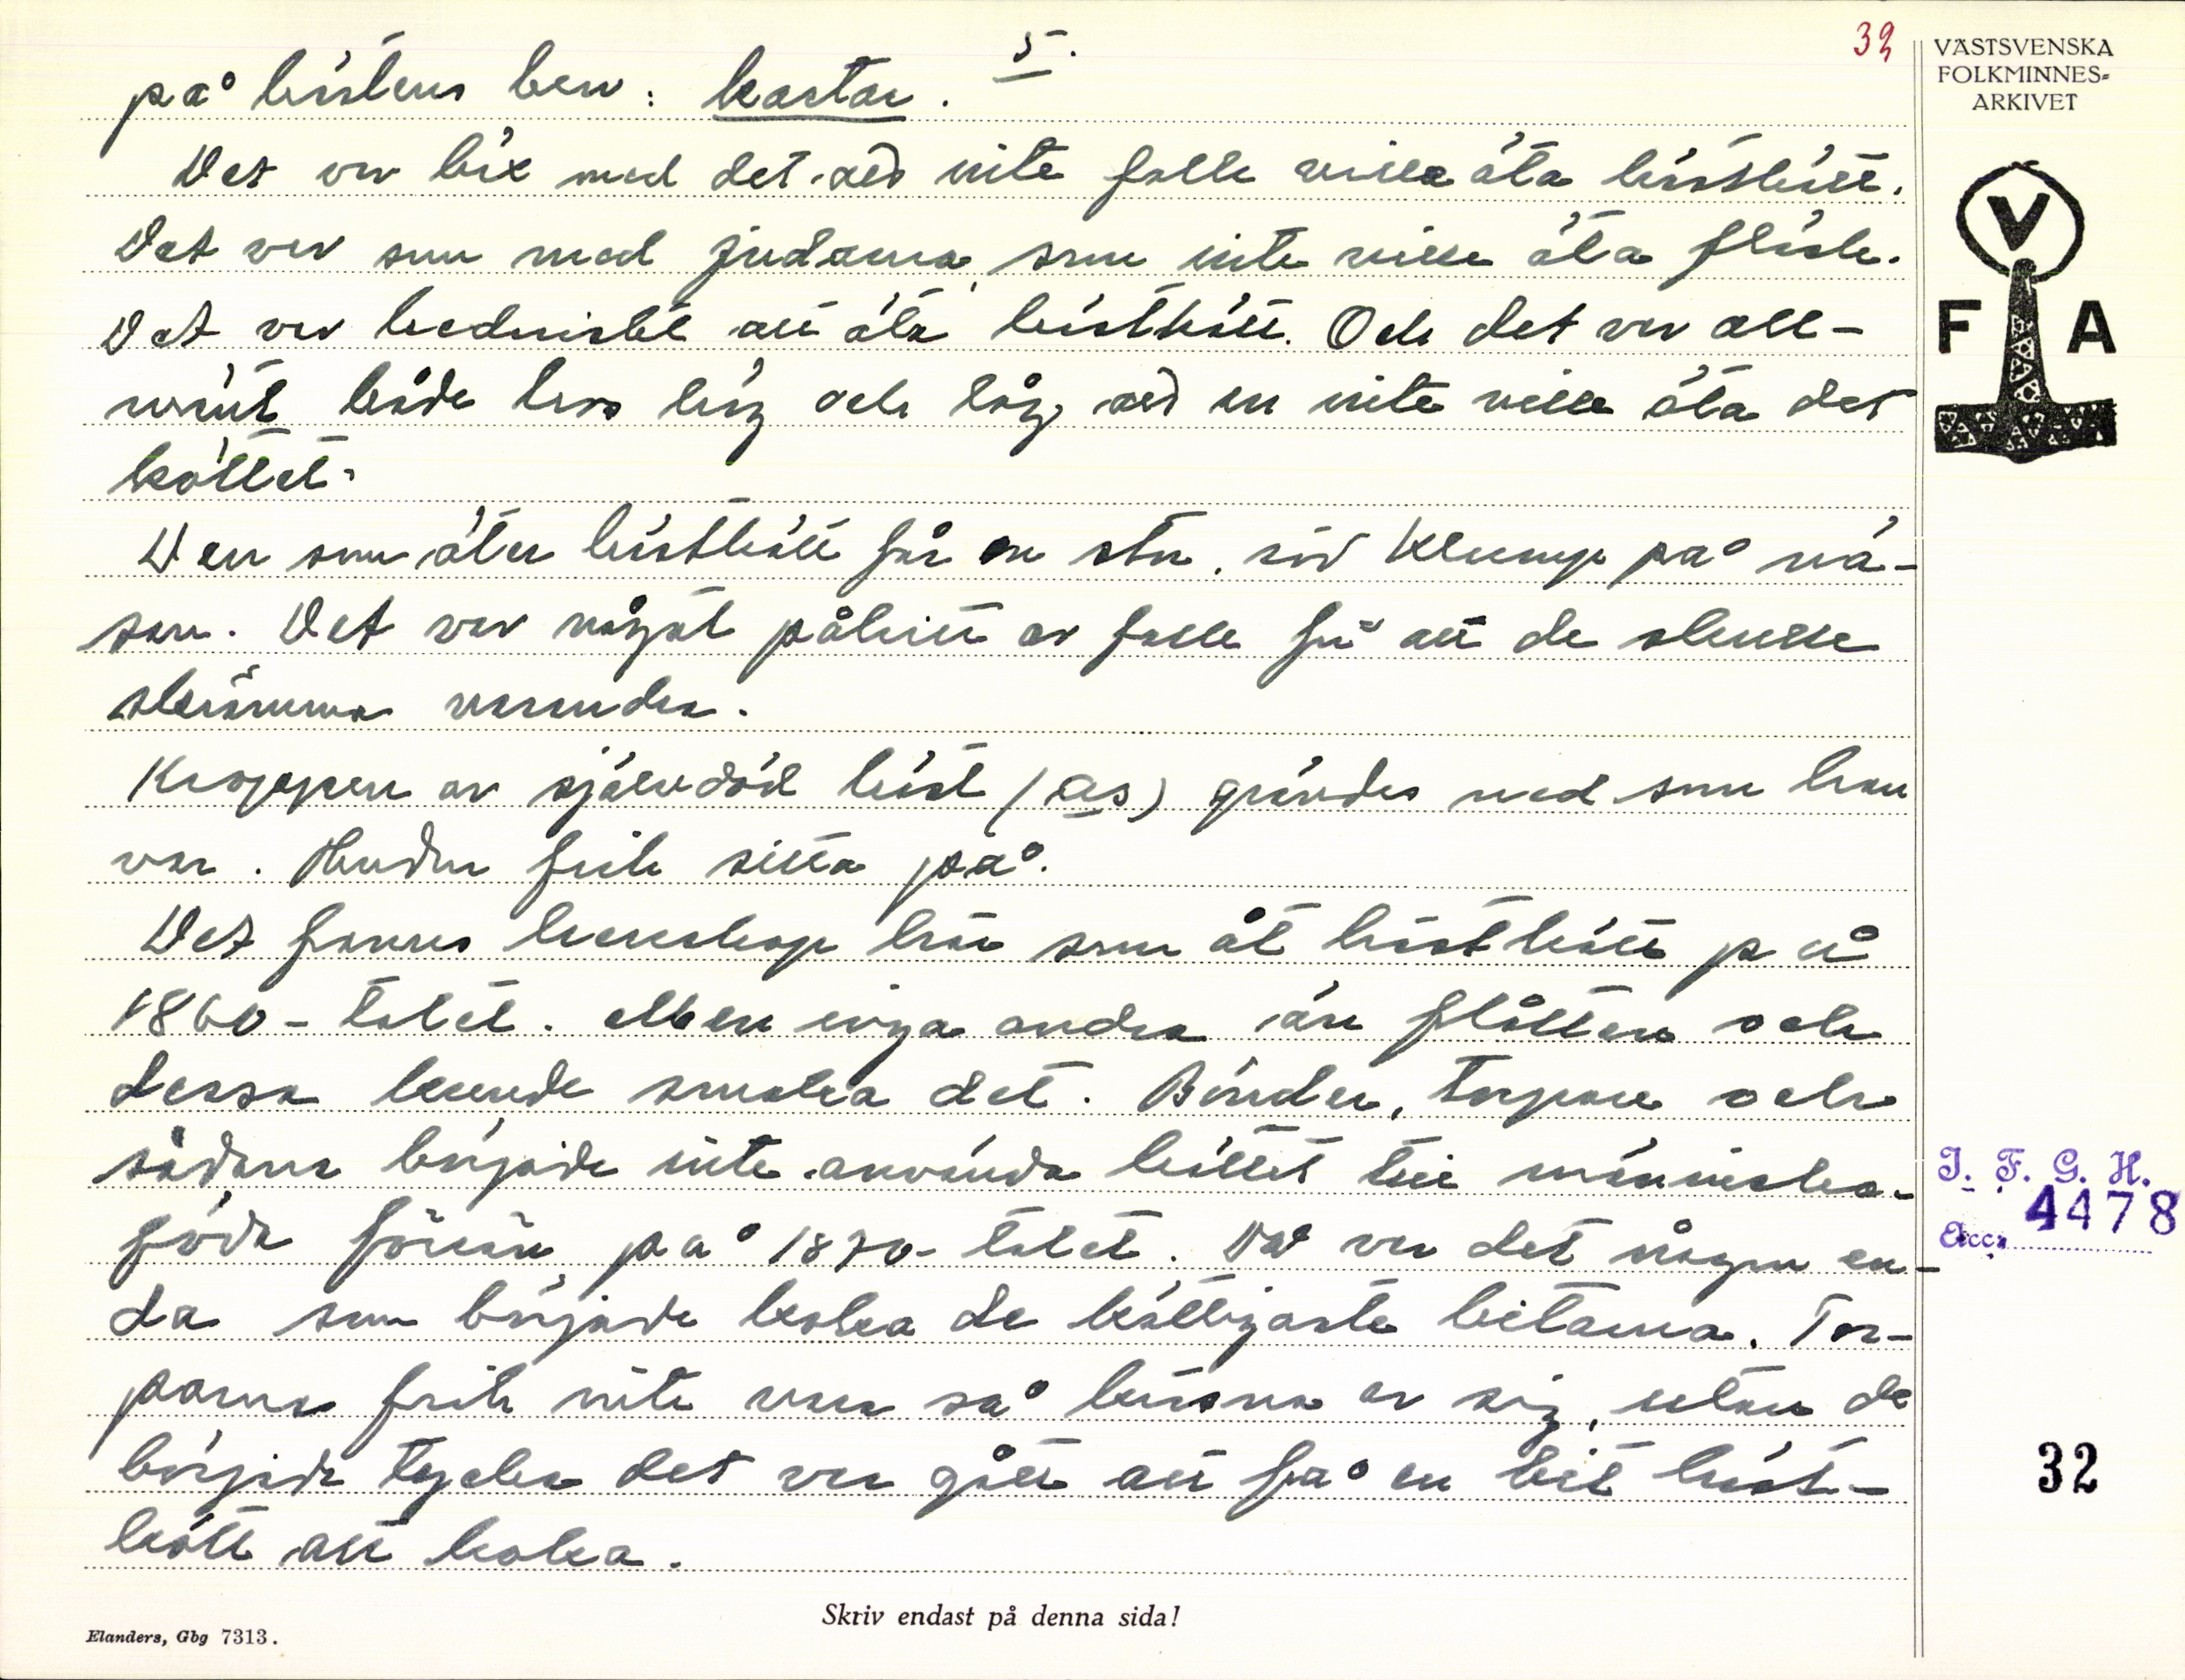 5.
32
på hästens ben: kartar.
Det var lix med det att inte folk ville äta hästkött.
Det var som med judarna, som inte ville äta fläsk.
Det var hedniskt att äta hästkött. Och det var all-
mänt både hos hög och låg, att en inte ville äta det
köttet.
Den som äter hästkött får en stor, röd klump på nä-
san. Det var något påhitt av folk för att de skulle
skrämma varandra.
Kroppen av självdöd häst (as) grävdes ned som han
var. Huden fick sitta på.
Det fanns herrskap här som åt hästkött på
1860-talet. Men inga andra än flåttare och
dessa kunde smaka det. Bönder, torpare och
sådana började inte använda köttet till människo-
föda förrän på 1870-talet. Då var det någon en-
da som började koka de köttigaste bitarna. Tor-
parna fick inte vara så kräsna av sig, utan de
började tycka det var gott att få en bit häst-
kött att koka.
Skriv endast på denna sida!
Elanders, Gbg 7313.
VÄSTSVENSKA
FOLKMINNES-
ARKIVET
V
F A
I. F. G. H.
Acc. 4478
32